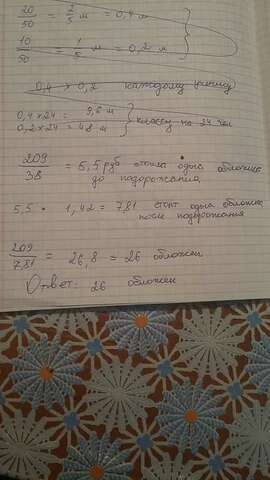 20/50 = 2/5 м = 0,4 м
10/50 = 1/5 м = 0,2 м
0,4 × 0,2 каждому ученику
0,4×24 = 9,6 м
0,2×24 = 4,8 м } классу на 24 чел
209/38 = 5,5 руб стоила одна обложка
до подорожания
5,5 · 1,42 = 7,81 стоит одна обложка
после подорожания
209/7,81 = 26,8 = 26 обложек
Ответ: 26 обложек